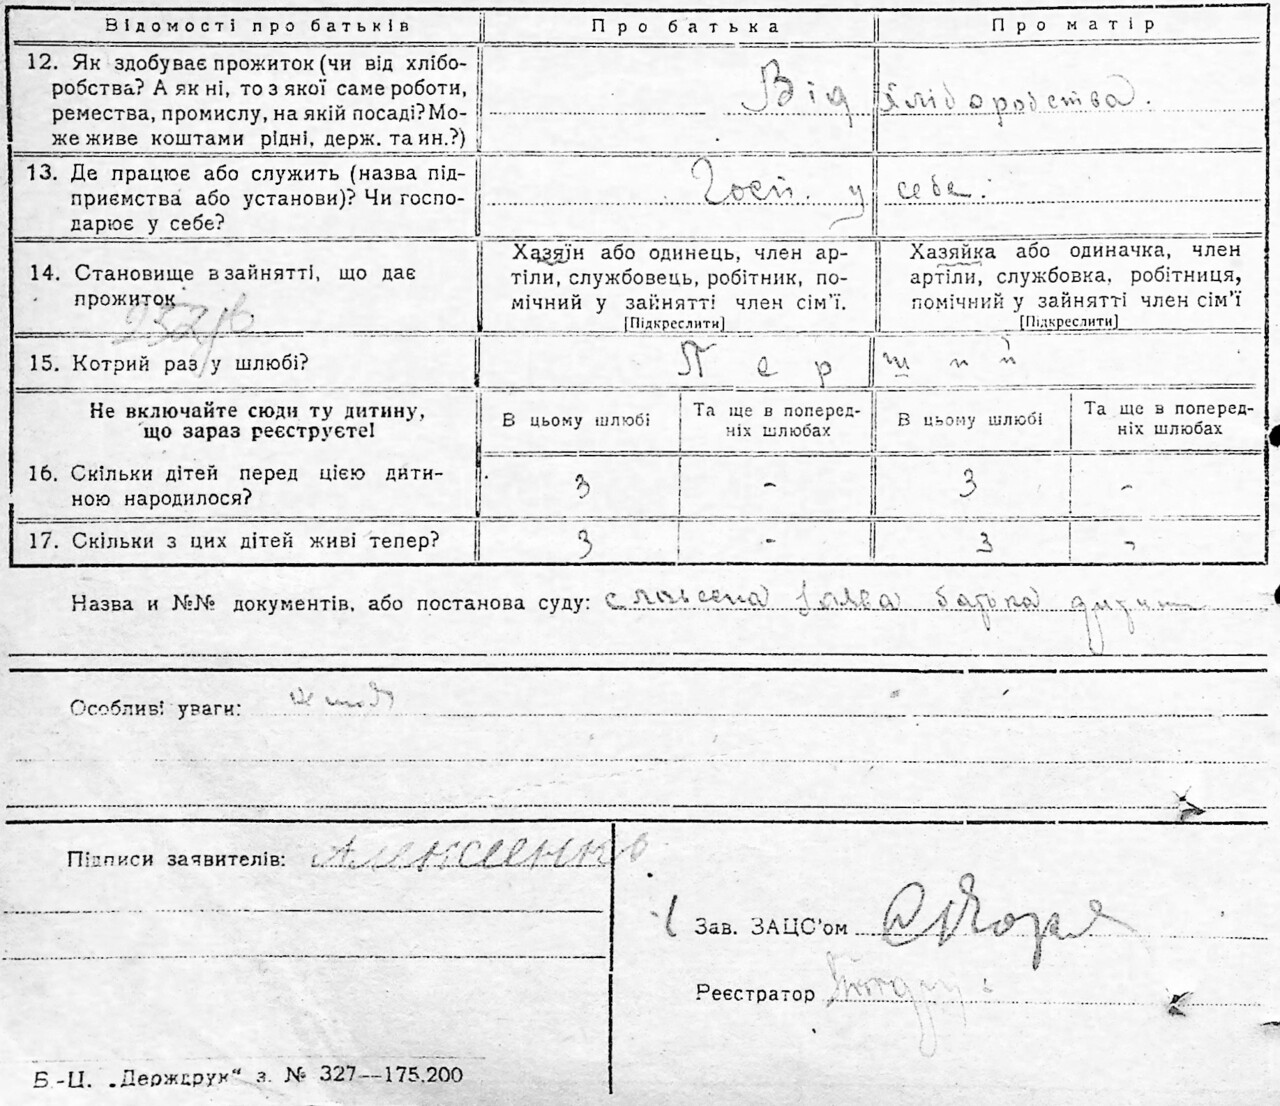 Відомості про батьків Про батька Про матір
12. Як здобуває прожиток (чи від хлібо-
робства? А як ні, то з якої саме роботи,
ремества, промислу, на якій посаді? Мо-
же живе коштами рідні, держ. та ин.?)
Від хліборобства.
13. Де працює або служить (назва під-
приємства або установи)? Чи госпо-
дарює у себе?
Госп. у себе.
14. Становище в зайнятті, що дає
прожиток
Хазяїн або одинець, член ар-
тіли, службовець, робітник, по-
мічний у зайнятті член сім'ї.
[Підкреслити]
Хазяйка або одиначка, член
артіли, службовка, робітниця,
помічний у зайнятті член сім'ї
[Підкреслити]
252/6
15. Котрий раз у шлюбі? Перший
Не включайте сюди ту дитину,
що зараз реєструєте!
В цьому шлюбі
Та ще в поперед-
ніх шлюбах
В цьому шлюбі
Та ще в поперед-
ніх шлюбах
16. Скільки дітей перед цією дити-
ною народилося?
3 - 3 -
17. Скільки з цих дітей живі тепер? 3 - 3 -
Назва и №№ документів, або постанова суду: заява батька
Особливі уваги:
Підписи заявителів: Алексеенко
Зав. ЗАЦС'ом
Реєстратор
Б.-Ц. „Держдрук" з. № 327—175.200